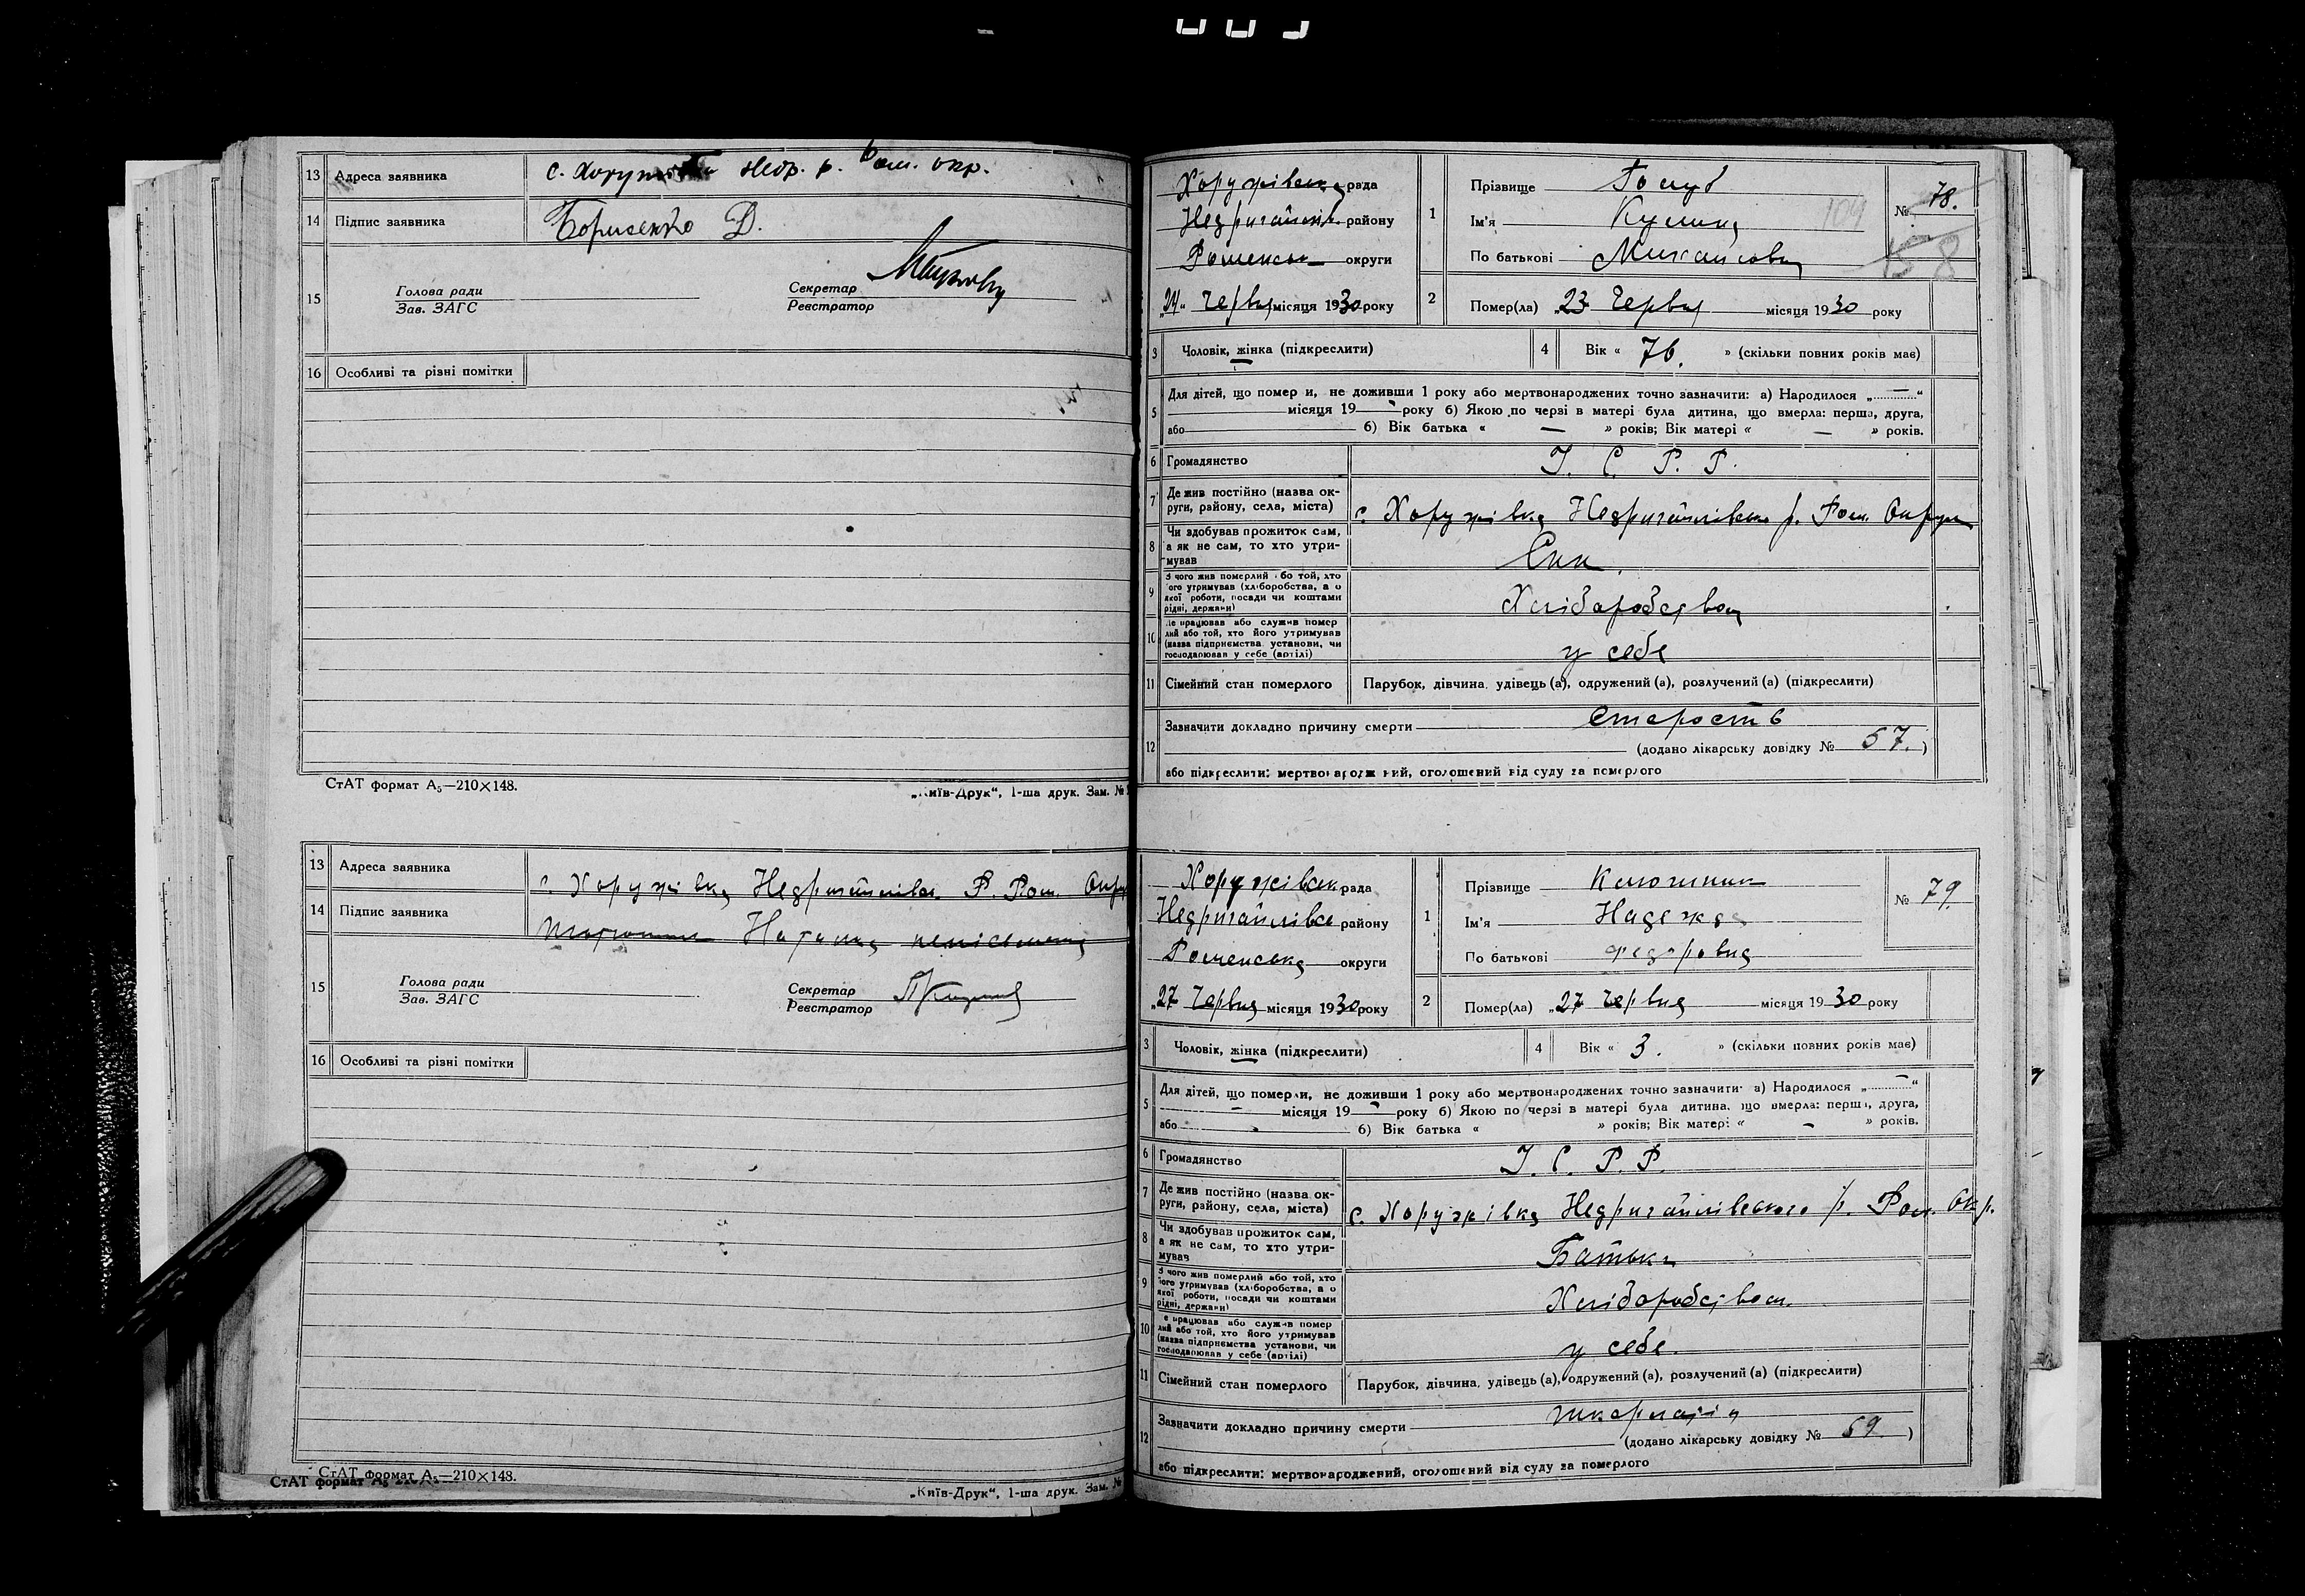 13 Адреса заявника с. Хоружівка Недр. р. Ром. окр.
14 Підпис заявника Борисенко Д.
15 Голова ради
Зав. ЗАГС
Секретар
Реєстратор
16 Особливі та різні помітки
СтАТ формат А₅—210×148.
„Київ-Друк“, 1-ша друк. Зам. №
13 Адреса заявника с. Хоружівка Недригайлівск. Р. Ром. Окру
14 Підпис заявника
15 Голова ради
Зав. ЗАГС
Секретар
Реєстратор
16 Особливі та різні помітки
СтАТ формат А₅—210×148.
СтАТ формат А₅
„Київ-Друк“, 1-ша друк. Зам. №
Хоружівська рада
Недригайлів. району
Роменськ округи
„24“ Червня місяця 1930 року
1 Прізвище Голуб
Ім'я
По батькові Михайловна
№ 78.
104
158
2 Помер(ла) „23 Червня місяця 1930 року
3 Чоловік, жінка (підкреслити)
4 Вік « 76. » (скільки повних років має)
5 Для дітей, що померли, не доживши 1 року або мертвонароджених точно зазначити: а) Народилося „—“
місяця 19— року б) Якою по черзі в матері була дитина, що вмерла: перша, друга,
або 6) Вік батька « — » років; Вік матері « — » років.
6 Громадянство У. С. Р. Р.
7 Де жив постійно (назва ок-
руги, району, села, міста) с. Хоружівка Недригайлівськ р. Ром. Округи
8 Чи здобував прожиток сам,
а як не сам, то хто утри-
мував
9 З чого жив померлий або той, хто
його утримував (хліборобства, а о
якої роботи, посади чи коштами
рідні, держави) Хліборобством
10 Де працював або служив помер
лий або той, хто його утримував
(назва підприємства установи, чи
господарював у себе (артілі) у себе
11 Сімейний стан померлого Парубок, дівчина, удівець (а), одружений (а), розлучений (а) (підкреслити)
12 Зазначити докладно причину смерти Старость
(додано лікарську довідку № 57. )
або підкреслити: мертвонароджений, оголошений від суду за померлого
Хоружівськ рада
Недригайлівсь району
Роменська округи
„27 Червня місяця 1930 року
1 Прізвище
Ім'я Надежда
По батькові Федоровна
№ 79
2 Помер(ла) „27 Червня місяця 1930 року
3 Чоловік, жінка (підкреслити)
4 Вік « 3. » (скільки повних років має)
5 Для дітей, що померли, не доживши 1 року або мертвонароджених точно зазначити: а) Народилося „—“
— місяця 19— року б) Якою по черзі в матері була дитина, що вмерла: перша, друга,
або 6) Вік батька « » років; Вік матері « — » років.
6 Громадянство У. С. Р. Р.
7 Де жив постійно (назва ок-
руги, району, села, міста) с. Хоружівка Недригайлівського р. Ром. Окр.
8 Чи здобував прожиток сам,
а як не сам, то хто утри-
мував Батьки
9 З чого жив померлий або той, хто
його утримував (хліборобства, а о
якої роботи, посади чи коштами
рідні, держави) Хліборобством.
10 Де працював або служив помер
лий або той, хто його утримував
(назва підприємства установи, чи
господарював у себе (артілі) у себе.
11 Сімейний стан померлого Парубок, дівчина, удівець (а), одружений (а), розлучений (а) (підкреслити)
12 Зазначити докладно причину смерти
(додано лікарську довідку № 59 )
або підкреслити: мертвонароджений, оголошений від суду за померлого